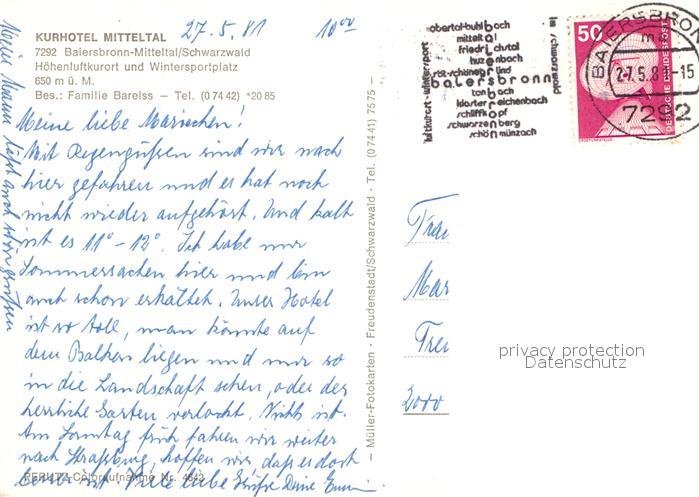 KURHOTEL MITTELTAL 27.5.81 10⁰⁰
7292 Baiersbronn-Mitteltal/Schwarzwald
Höhenluftkurort und Wintersportplatz
650 m ü. M.
Bes.: Familie Bareiss – Tel. (0 74 42) *20 85
Meine liebe Mariechen!
Mit Regengüssen sind wir nach
hier gefahren und es hat noch
nicht wieder aufgehört. Und kalt
ist es 11°-12°. Ich habe nur
Sommersachen hier und bin
auch schon erkältet. Unser Hotel
ist so toll, man könnte auf
dem Balkon liegen und nur so
in die Landschaft sehen, oder der
herrliche Garten verlockt. Nichts ist.
Am Sonntag früh fahren wir weiter
nach Straßburg, hoffen wir, daß es dort
besser ist. Viele liebe Grüße Deine
PERUTZ-Coloraufnahme Nr. 4642
Meine Mann läßt auch schön grüßen
– Müller-Fotokarten · Freudenstadt/Schwarzwald · Tel. (0 74 41) 75 75 –
obertal-buhlbach
mitteltal
friedrichstal
huzenbach
röt-schönegründ
baiersbronn
tonbach
klosterreichenbach
schliffkopf
schwarzenberg
schönmünzach
luftkurort - wintersport
im schwarzwald
50
DEUTSCHE BUNDESPOST
BAIERSBRONN
27.5.81-15
7292
Frau
Mar
Frei
2000
privacy protection
Datenschutz